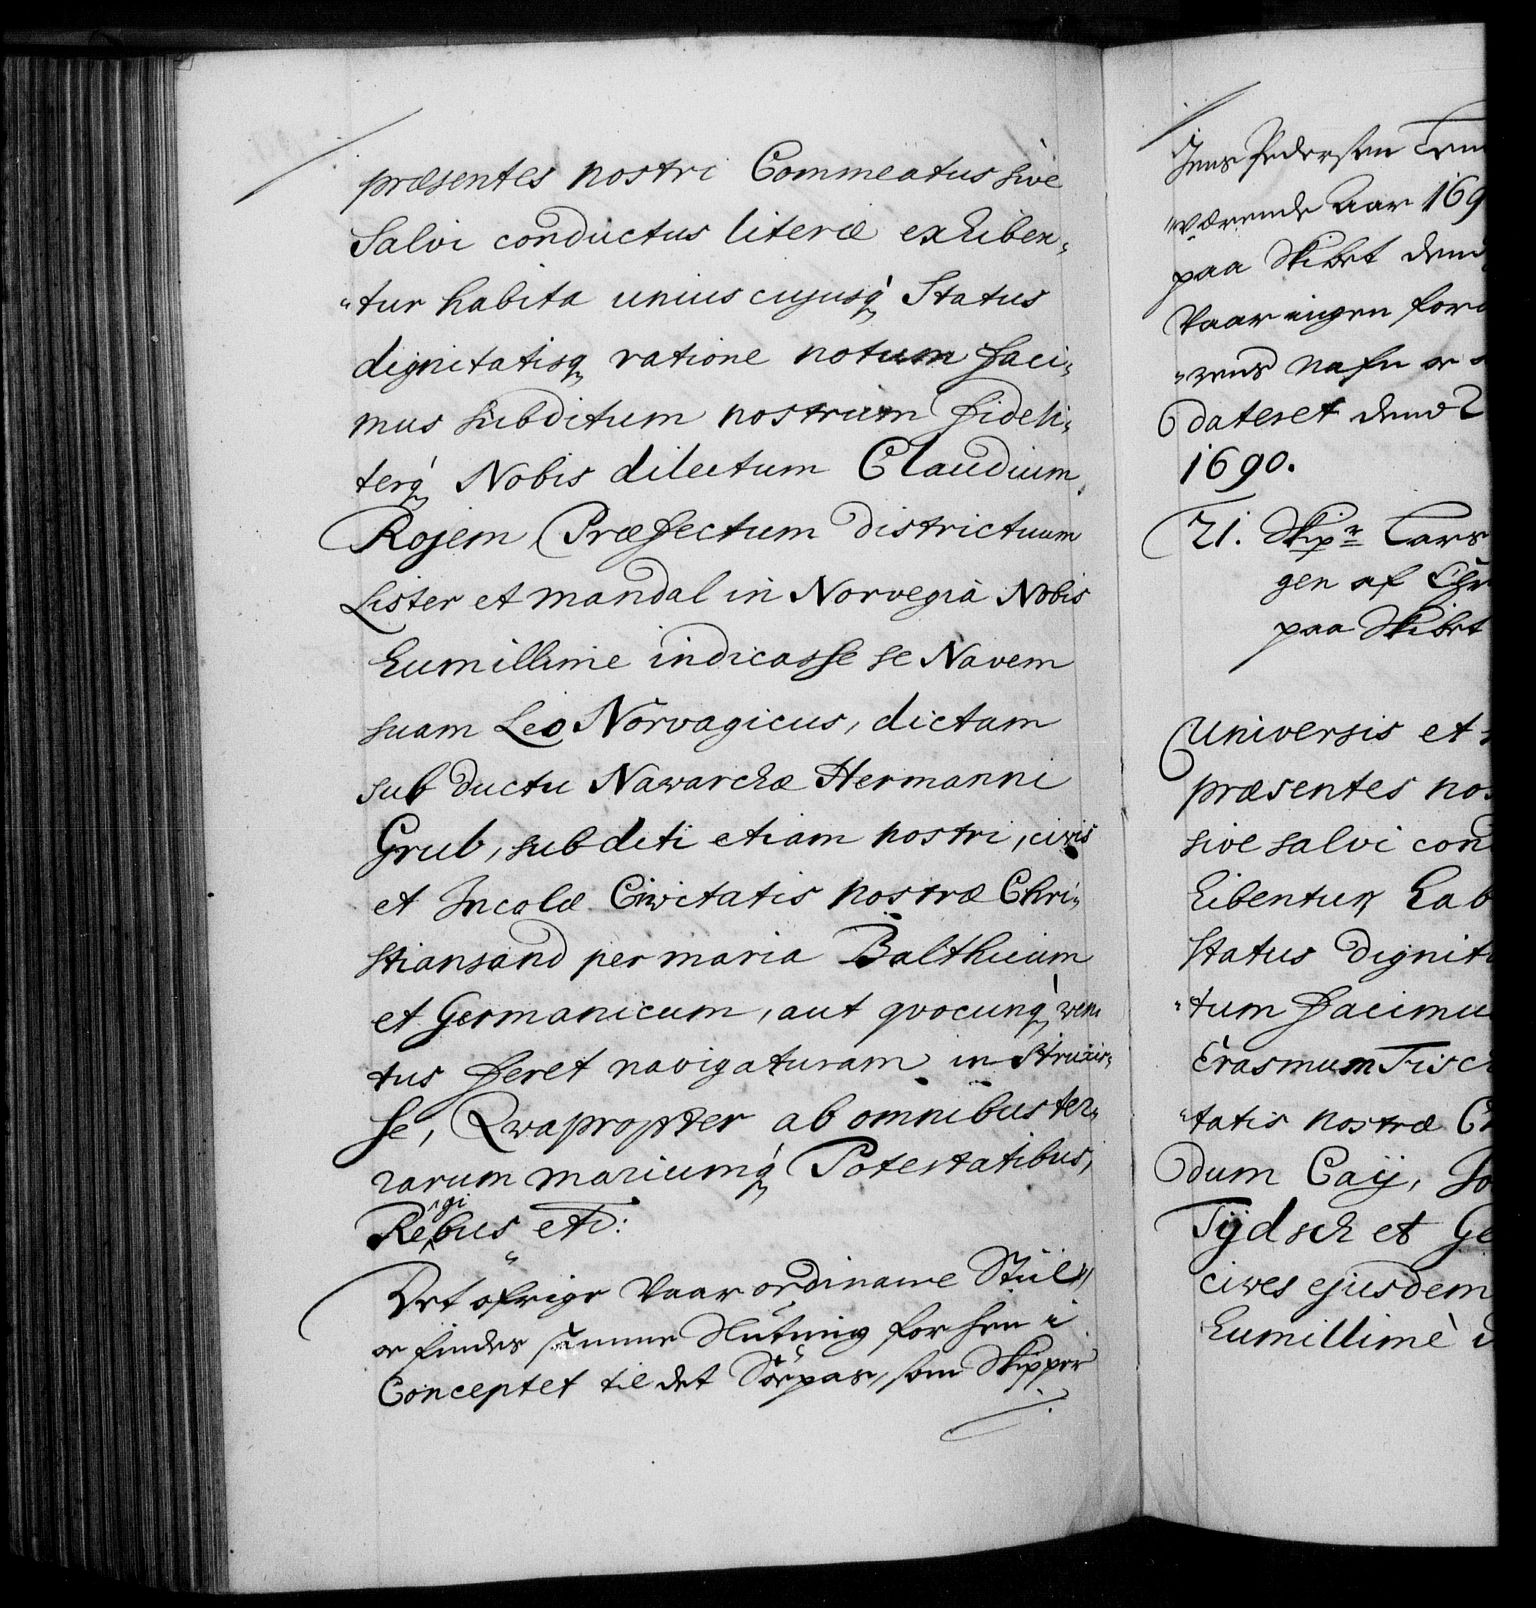 præsentes nostri Commeatus sive
Salvi conductus literæ exhiben„
„tur habita unius cujusq́ Status
dignitatisq ratione notum faci„
mus subditum nostrum fideli„
terq́ Nobis dilectum Claudium
Rojem, Præfectum districtuum
Lister et mandal in Norvegiâ Nobis
humillime indicasse se Navem
suam Leo Norvagicus, dictam
sub ductu Navarchæ Hermanni
Grub, subditi etiam nostri, civis
et Incolæ Civitatis nostræ Chri„
stiansand per maria Balthicum
et Germanicum, aut qvocunq́ ven„
tus feret navigaturam instruxis„
se, Qvapropter ab omnibus ter„
rarum mariumq́ Potestatibus,
Regibus etc:
Det øfrige Vaar ordinaire Stül
og findes samme Slutning forhen i
Conceptet til det Söepas, som Skipper
Jens Pedersen
„værende Aar 169
paa Skibet
Vaar ingen for
„rens nafn er
dateret
1690.
21. Skipr Lars
gen af Chr
paa Skibet
Universis et
præsentes nos
sive salvi con
hibentur, hab
status dignit
„tum facimu
Erasmum Tisc
„tatis nostræ Ch
dum Caÿ, Jo
Tÿdsch et Ge
cives ejusdem
humillimè